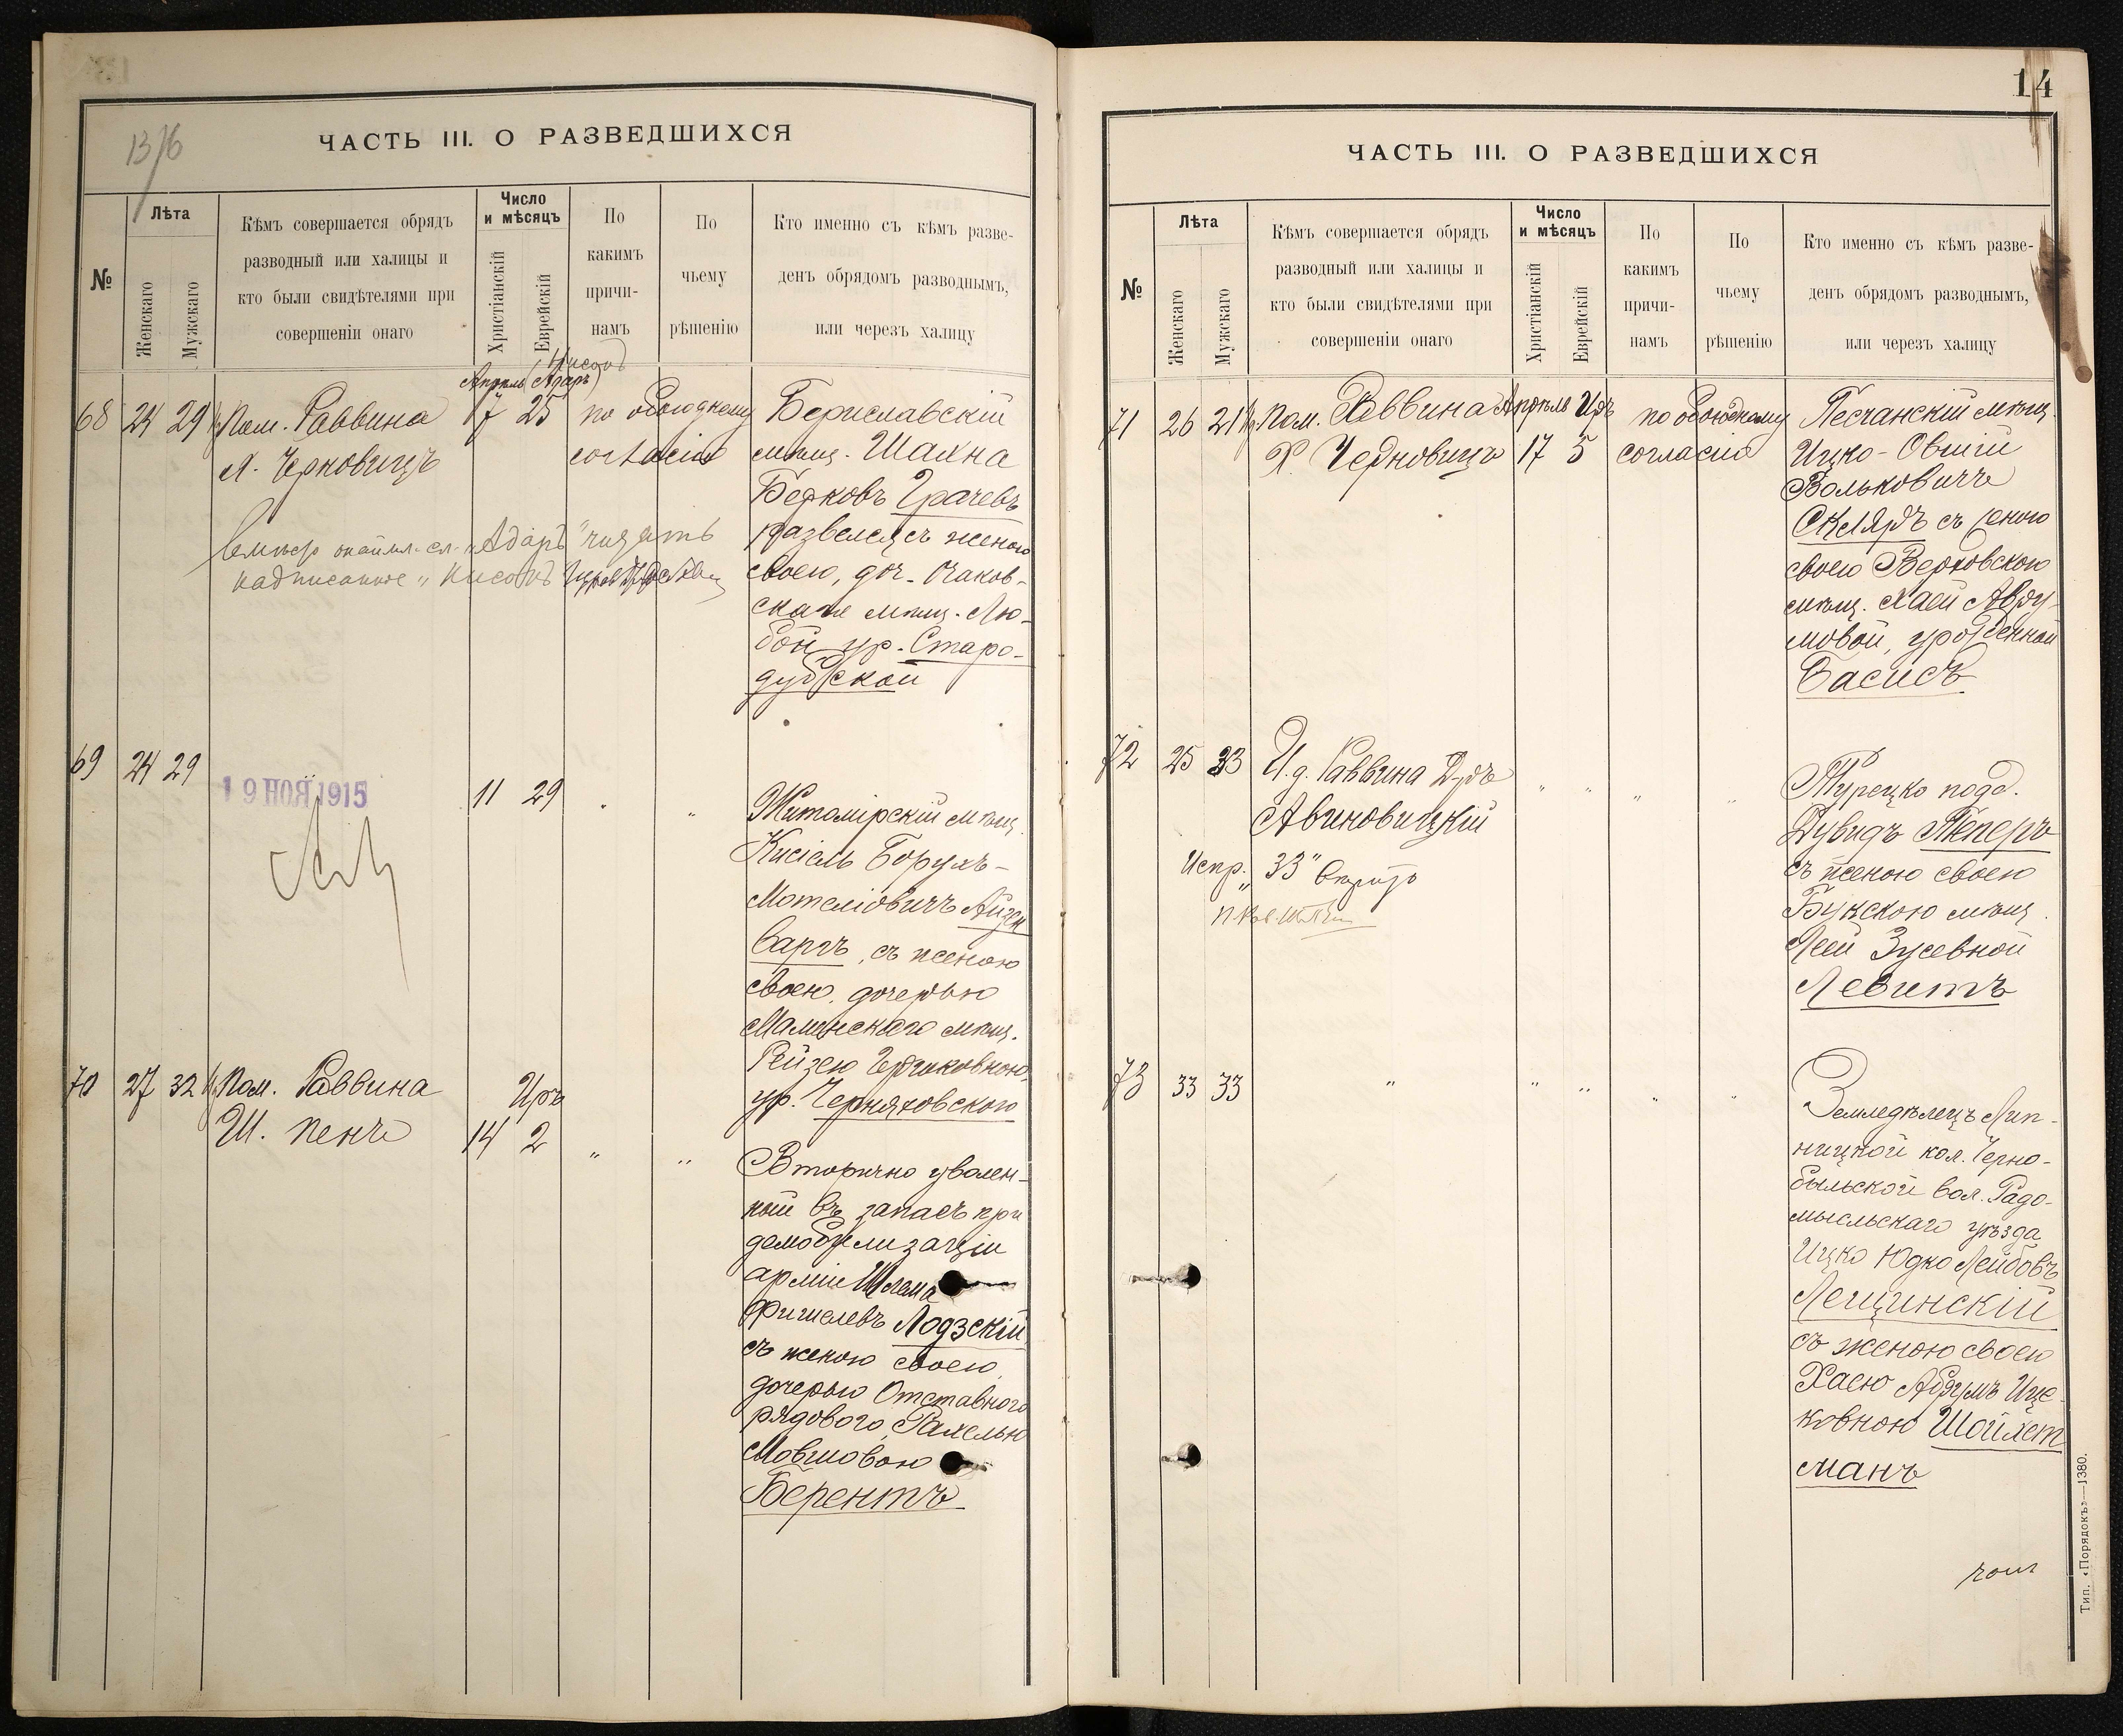 13/76
ЧАСТЬ III. О РАЗВЕДШИХСЯ
№
Лѣта
Женскаго
Мужскаго
Кѣмъ совершается обрядъ
разводный или халицы и
кто были свидѣтелями при
совершеніи онаго
Число
и мѣсяцъ
Христіанскій
Еврейскій
По
какимъ
причи-
намъ
По
чьему
рѣшенію
Кто именно съ кѣмъ разве-
денъ обрядомъ разводнымъ,
или черезъ халицу
68 24 29½
Пом. Раввина
Х. Черновицъ
Нисонъ
Апрѣль (Адаръ)
7 25
по обоюдному
согласію
Бериславскій
мѣщ. Шахна
Берковъ Грачевъ
развелся съ женою
своею, доч. Очаков-
скаго мѣщ. Лю-
бой ур. Старо-
дубской
Вмѣсто окаймл. сл. "Адаръ" читать
надписанное "Нисонъ"
69 24 29
19 НОЯ 1915
11 29 " "
Житомірскій мѣщ.
Кисіель Борухъ-
Мотеліовичъ Айзен
варгъ, съ женою
своею, дочерью
Малинскаго мѣщ.
Рейзею
ур. Черняховскою
70 27 32½
Пом. Раввина
Ш. Пенъ
Иръ
14 2 " "
Вторично уволен-
ный въ запасъ при
демобилизаціи
арміи Шлема
Фишелевъ Лодзскій
съ женою своею,
дочерью Отставного
рядового, Рахелью
Мовшовою
Берентъ
14
ЧАСТЬ III. О РАЗВЕДШИХСЯ
№
Лѣта
Женскаго
Мужскаго
Кѣмъ совершается обрядъ
разводный или халицы и
кто были свидѣтелями при
совершеніи онаго
Число
и мѣсяцъ
Христіанскій
Еврейскій
По
какимъ
причи-
намъ
По
чьему
рѣшенію
Кто именно съ кѣмъ разве-
денъ обрядомъ разводнымъ,
или черезъ халицу
71 26 21½
Пом. Раввина
Х. Черновицъ
Апрѣль Иръ
17 5
по обоюдному
согласію
Песчанскій мѣщ.
Ицко-Овшій
Вольковичъ
Скляръ съ женою
своею Верховскою
мѣщ. Хаей Авру-
мовой, урожденной
Басисъ
72 25 33
И.д. Раввина Д-ръ
Авиновицкій
" " " "
Турецко подд.
Дувидъ Теперъ
съ женою своею
Букскою мѣщ.
Леей Зусевной
Левитъ
Испр. "33"
73 33 33
" " " " "
Земледѣлецъ Лип-
ницкой кол. Черно-
быльской вол. Радо-
мысльскаго уѣзда
Ицко Юдко Лейбовъ
Лещинскій
съ женою своею
Хаею Абрумъ Иц-
ковною Шойхет
манъ
Тип. «Порядокъ»—1380.